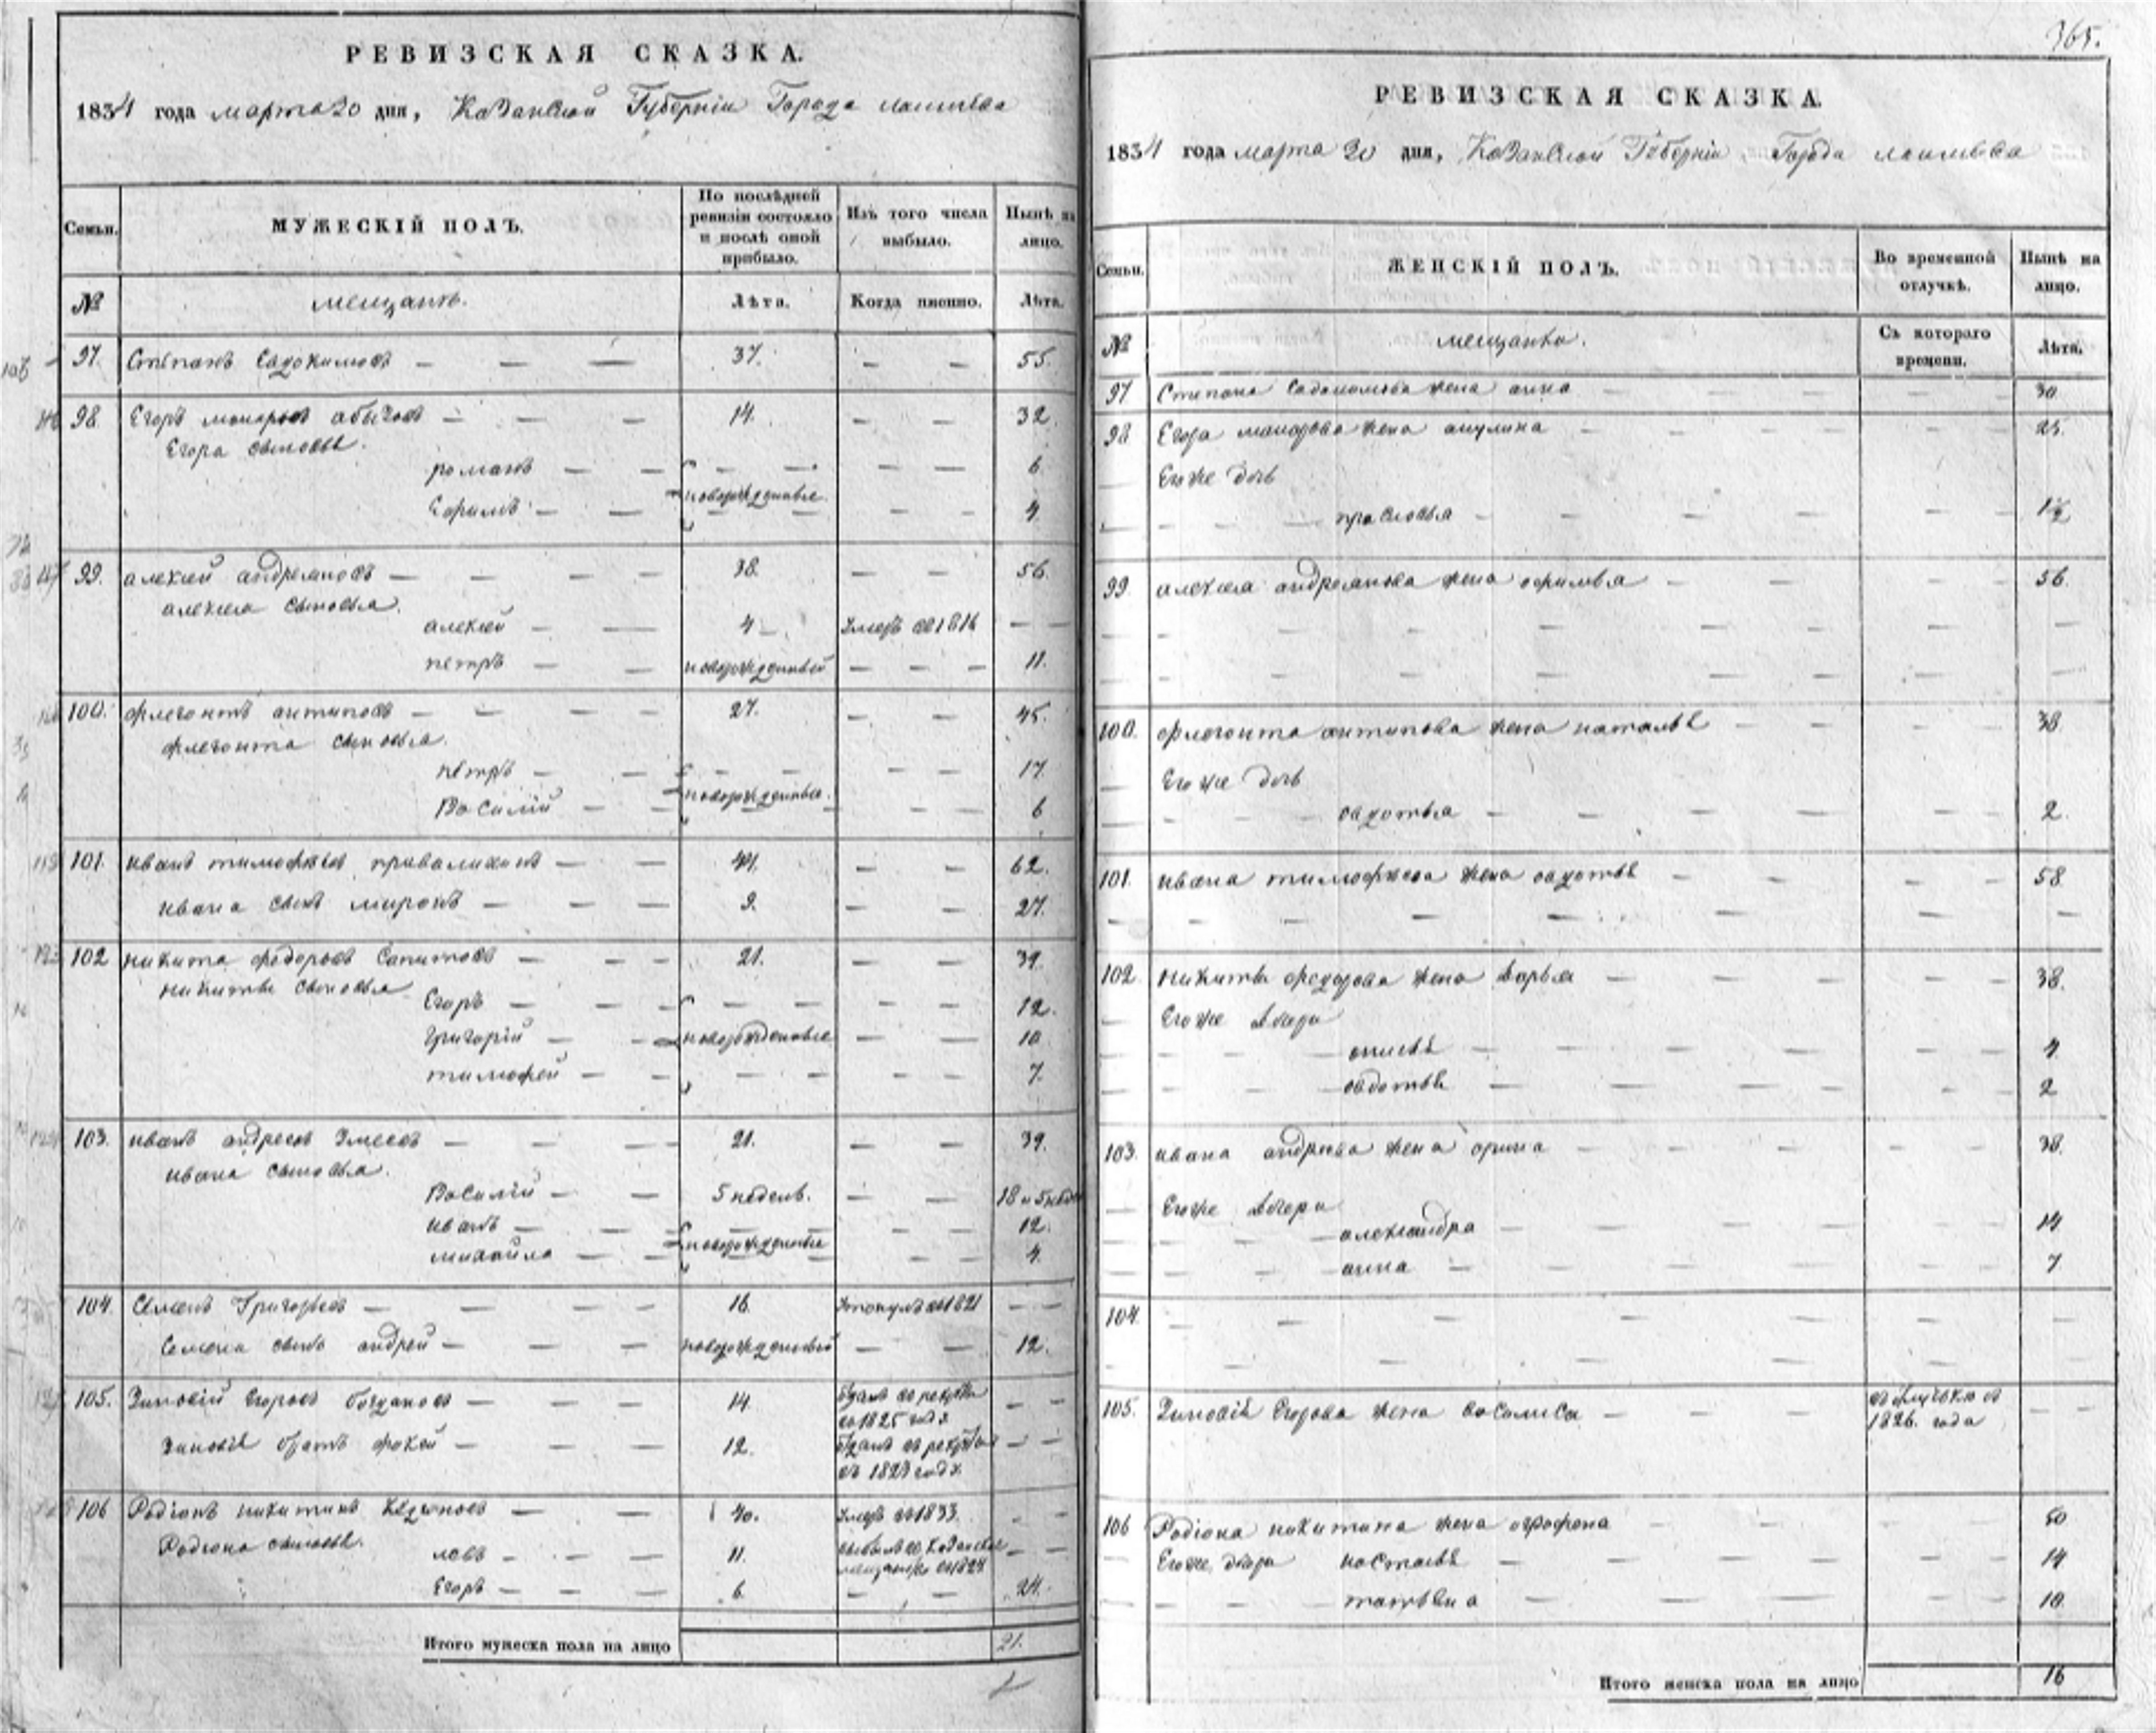 РЕВИЗСКАЯ СКАЗКА.
1834 года марта 20 дня, Казанской Губерніи Города Лаишева
Семьи.
МУЖЕСКІЙ ПОЛЪ.
По послѣдней ревизіи состояло и послѣ оной прибыло.
Изъ того числа выбыло.
Нынѣ на лицо.
№
мещанъ.
Лѣта.
Когда именно.
Лѣта.
97. Степанъ Евдокимовъ — — — 37. — — 55.
98. Егоръ макаровъ — — — 14. — — 32
Егора сыновья.
романъ — — — — — — 6
новорожденные
Ефимъ — — — — — — 4
99. алексей андреяновъ — — — — 38. — — 56.
алексея сыновья.
алексей — — 4 — умеръ въ 1816 — —
петръ — — новорожденный — — — 11.
100. флегонтъ антиповъ — — — — 27. — — 45.
флегонта сыновья.
петръ — — — — — — 17
новорожденные.
Василій — — — — — — 6
101. иванъ тимофѣевъ привалихинъ — — 44. — — 62.
ивана сынъ миронъ — — — 9. — — 27.
102 никита федоровъ — — — 21. — — 39.
никиты сыновья
Егоръ — — — — — — — 12.
Григорій — — новорожденные — — 10
тимофей — — — — — — 7.
103. иванъ андреевъ — — — — 21. — — 39.
ивана сыновья.
Василій — — 5 недель. — — 18 и 5 недель
иванъ — — — — — — 12.
новорожденные
михайла — — — — — — 4.
104. Семенъ Григорьевъ — — — — 16. утонулъ въ 1821 — —
Семена сынъ андрей — — — новорожденный — — 12.
105. Зиновій Егоровъ богдановъ — — — 14. отданъ въ рекруты въ 1825 году — —
Зиновія братъ фокей — — — 12. отданъ въ рекруты — —
106 Родіонъ никитинъ — — — 40. умеръ въ 1833. — —
Родіона сыновья.
левъ — — — 11. — —
Егоръ — — — 6. — — 24.
Итого мужеска пола на лицо 21.
365.
РЕВИЗСКАЯ СКАЗКА.
1834 года марта 20 дня, Казанской Губерніи, Города лаишева
Семьи.
ЖЕНСКІЙ ПОЛЪ.
Во временной отлучкѣ.
Нынѣ на лицо.
№
мещанки.
Съ котораго времени.
Лѣта.
97 Степана Евдокимова жена анна — — — — — 30
98 Егора макарова жена акулина — — — — — 25.
Его же дочь
прасковья — — — — — — 1½
99. алексея андреянова жена офимья — — — — — 56.
100. флегонта антипова жена наталья — — — — 38.
Его же дочь
овдотья — — — — — — 2.
101. ивана тимофѣева жена овдотья — — — — — 58
102. никиты федорова жена дарья — — — — — 38.
Его же дочери
— — — — — — 4
овдотья — — — — — — 2
103. ивана андреева жена орина — — — — — 38.
Его же дочери
александра — — — — — 14
анна — — — — — — 7
104. — — — — — — — —
105. Зиновія Егорова жена василиса — — — 1826. года — —
106 Родіона никитина жена аграфена — — — — 50
Его же дочери настасья — — — — — 14
татьяна — — — — — 10.
Итого женска пола на лицо 16